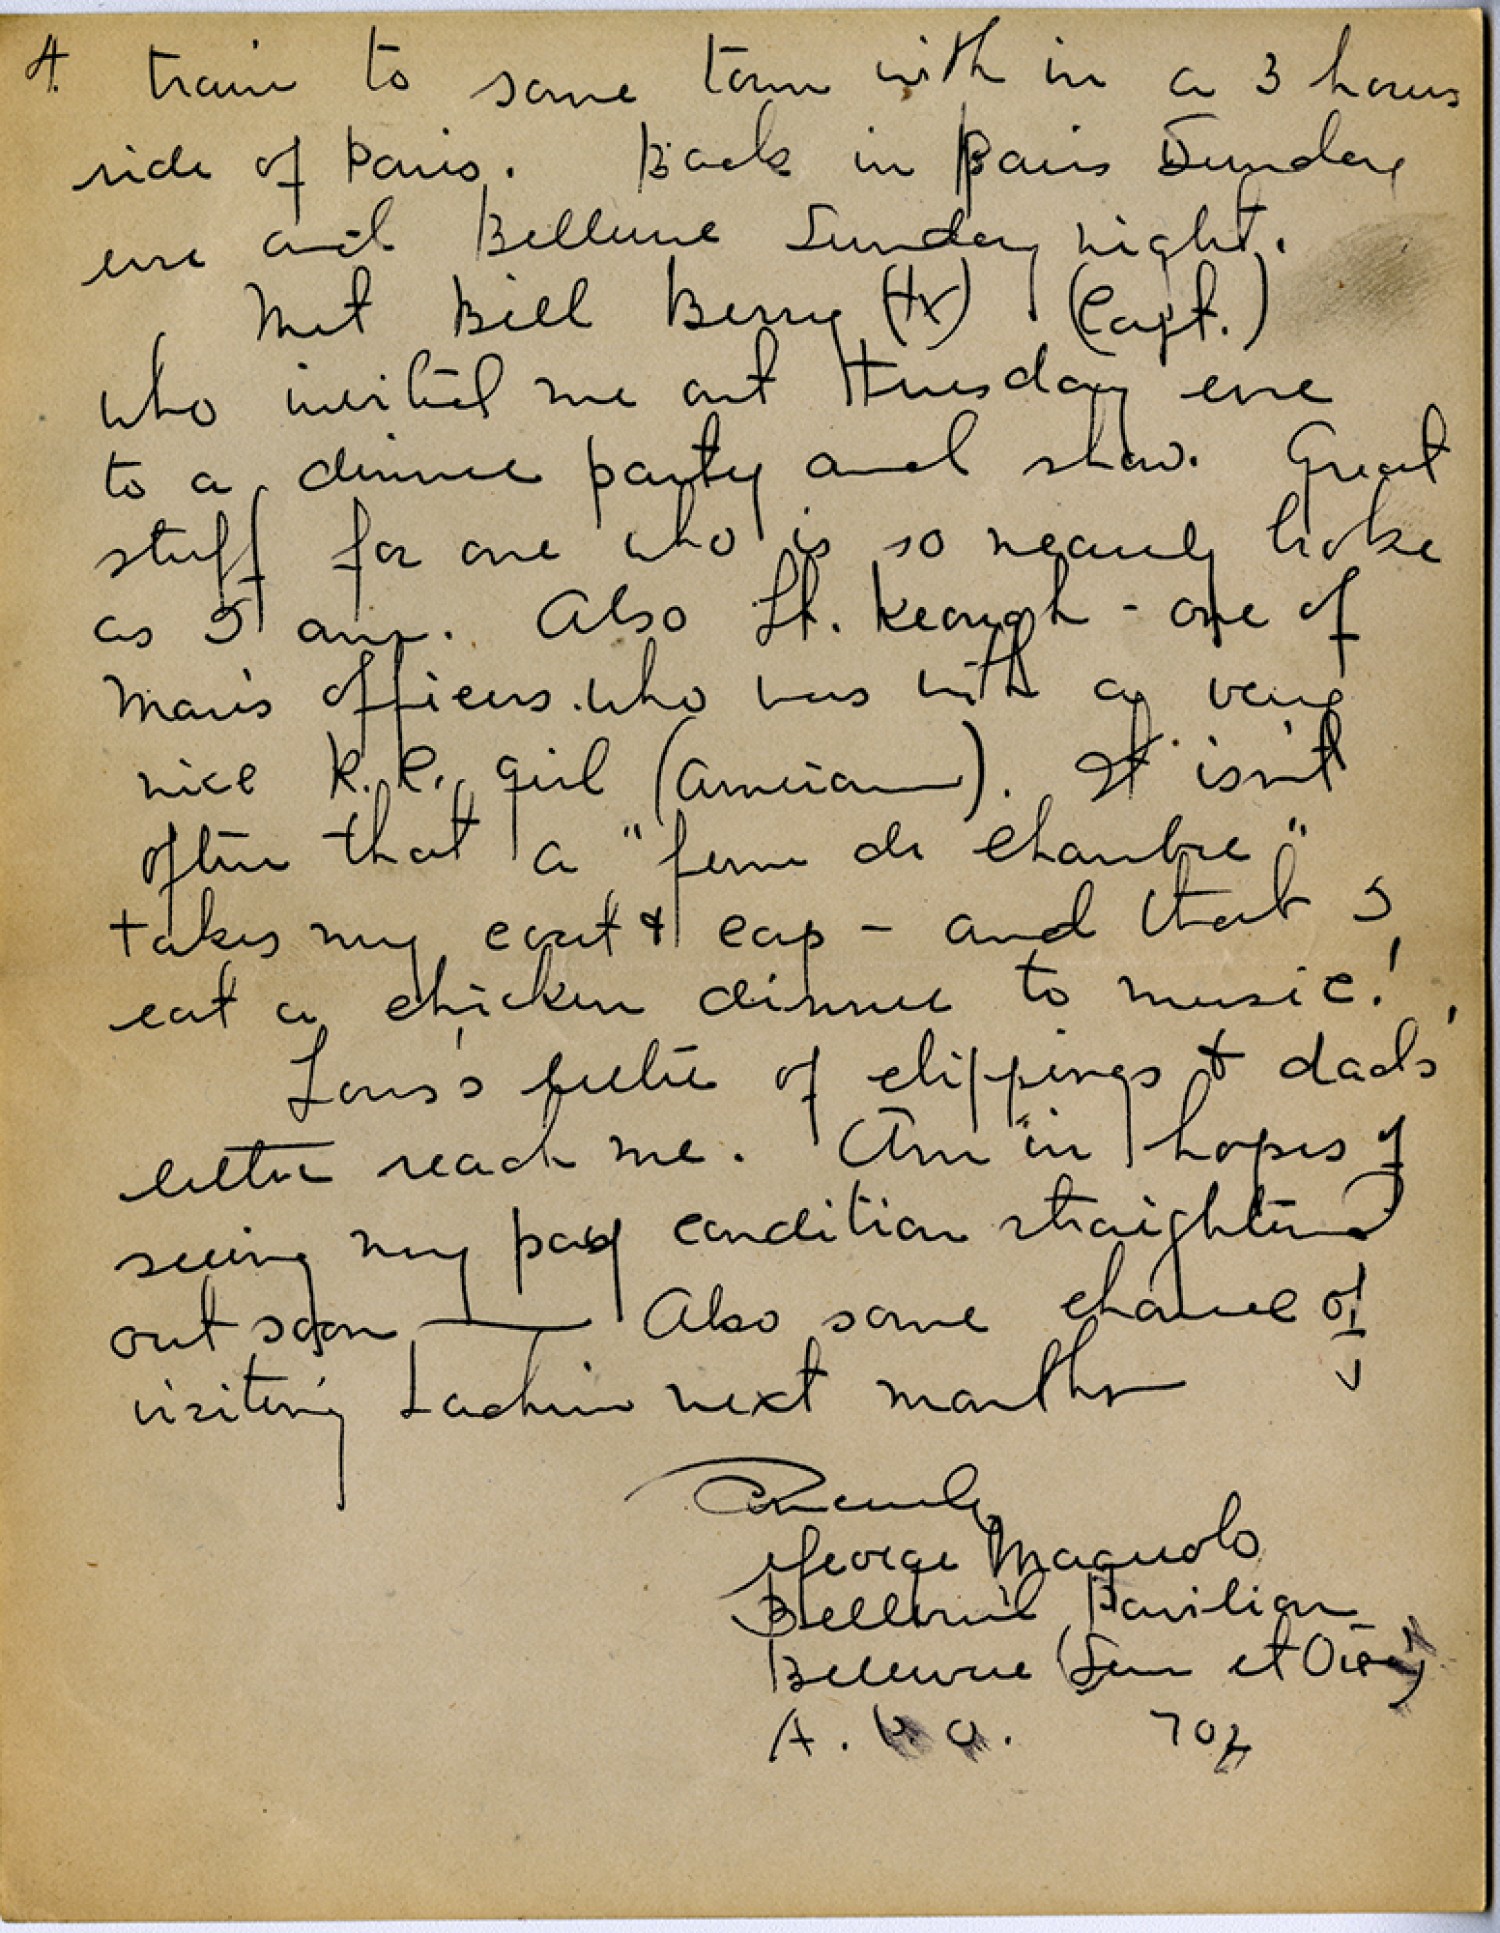 4. train to some town with in a 3 hours
ride of Paris. Back in Paris Sunday
eve and Bellevue Sunday night.
Met Bill Berry (Capt.)
who invited me out Tuesday eve
to a dinner party and show. Great
stuff for one who is so nearly broke
as I am. Also Lt. Keough - one of
Man's officers who was with a very
nice R.C. girl (American). It isn't
often that a "fem de chambre"
takes my coat & cap - and that I
eat a chicken dinner to music!
Lou's letter of clippings & dad's
letter reach me. Am in hopes of
seeing my pay condition straightened
out soon — Also some chance of
visiting next month
Sincerely
George
Bellevue Pavilion
Bellevue (Sein et Oise)
A.P.O. 702